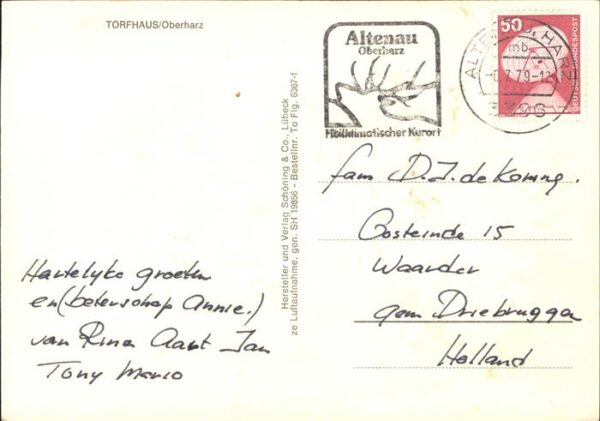 TORFHAUS/Oberharz
Altenau
Oberharz
Heilklimatischer Kurort
50
DEUTSCHE BUNDESPOST
ALTENAU, HARZ
mb
7.79-12
3396
Hersteller und Verlag Schöning & Co., Lübeck
ze Luftaufnahme, gen. SH 19856 - Bestellnr. To Flg. 6367-f
Hartelyke groeten
en (beterschap Annie.)
van Rina Aart Jan
Tony Marco
fam D.J. de Koning.
Oosteinde 15
Waarder
gem Driebruggen
Holland